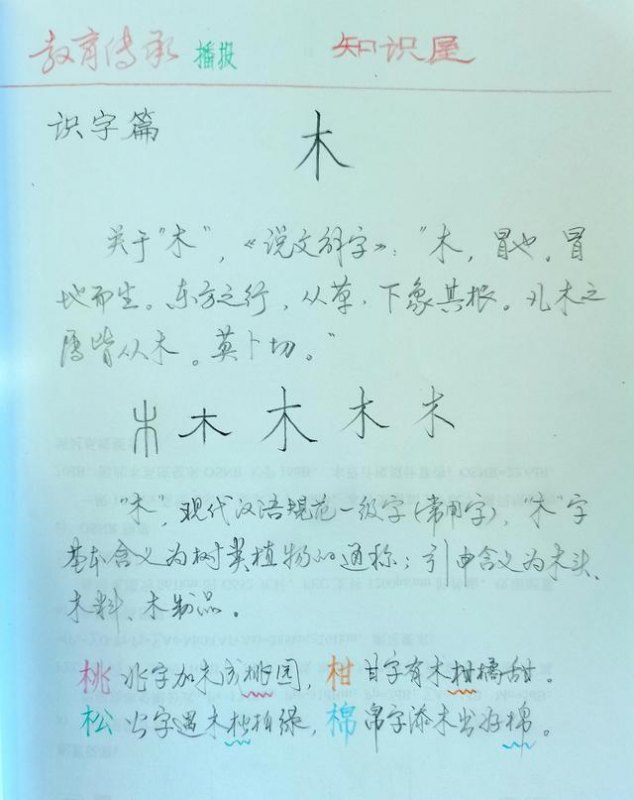 教育传承 播报 知识屋
识字篇 木
关于"木"，《说文解字》："木，冒也。冒
地而生。东方之行，从草，下象其根。凡木之
属皆从木。莫卜切。"
木 木 木 木 木
"木"，现代汉语规范一级字（常用字），"木"字
基本含义为树类植物的通称；引申含义为木头、
木料、木制品。
桃 兆字加木成桃园，柑 甘字有木柑橘甜。
松 公字遇木松柏绿，棉 帛字添木出好棉。